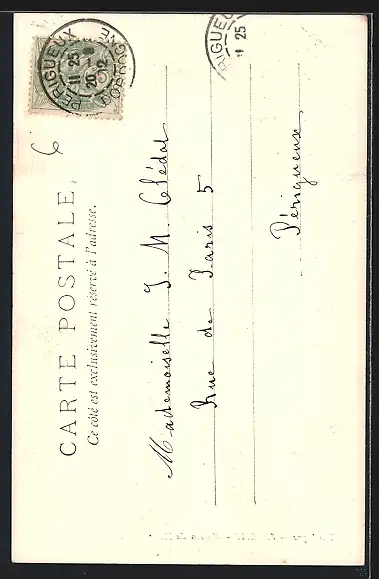 PERIGUEUX
DORDOGNE
11 25
20
02
PERIGUEUX
11 25
6
CARTE POSTALE
Ce côté est exclusivement réservé à l'adresse.
Mademoiselle J. M. Clédat
Rue de Paris 5
Périgueux